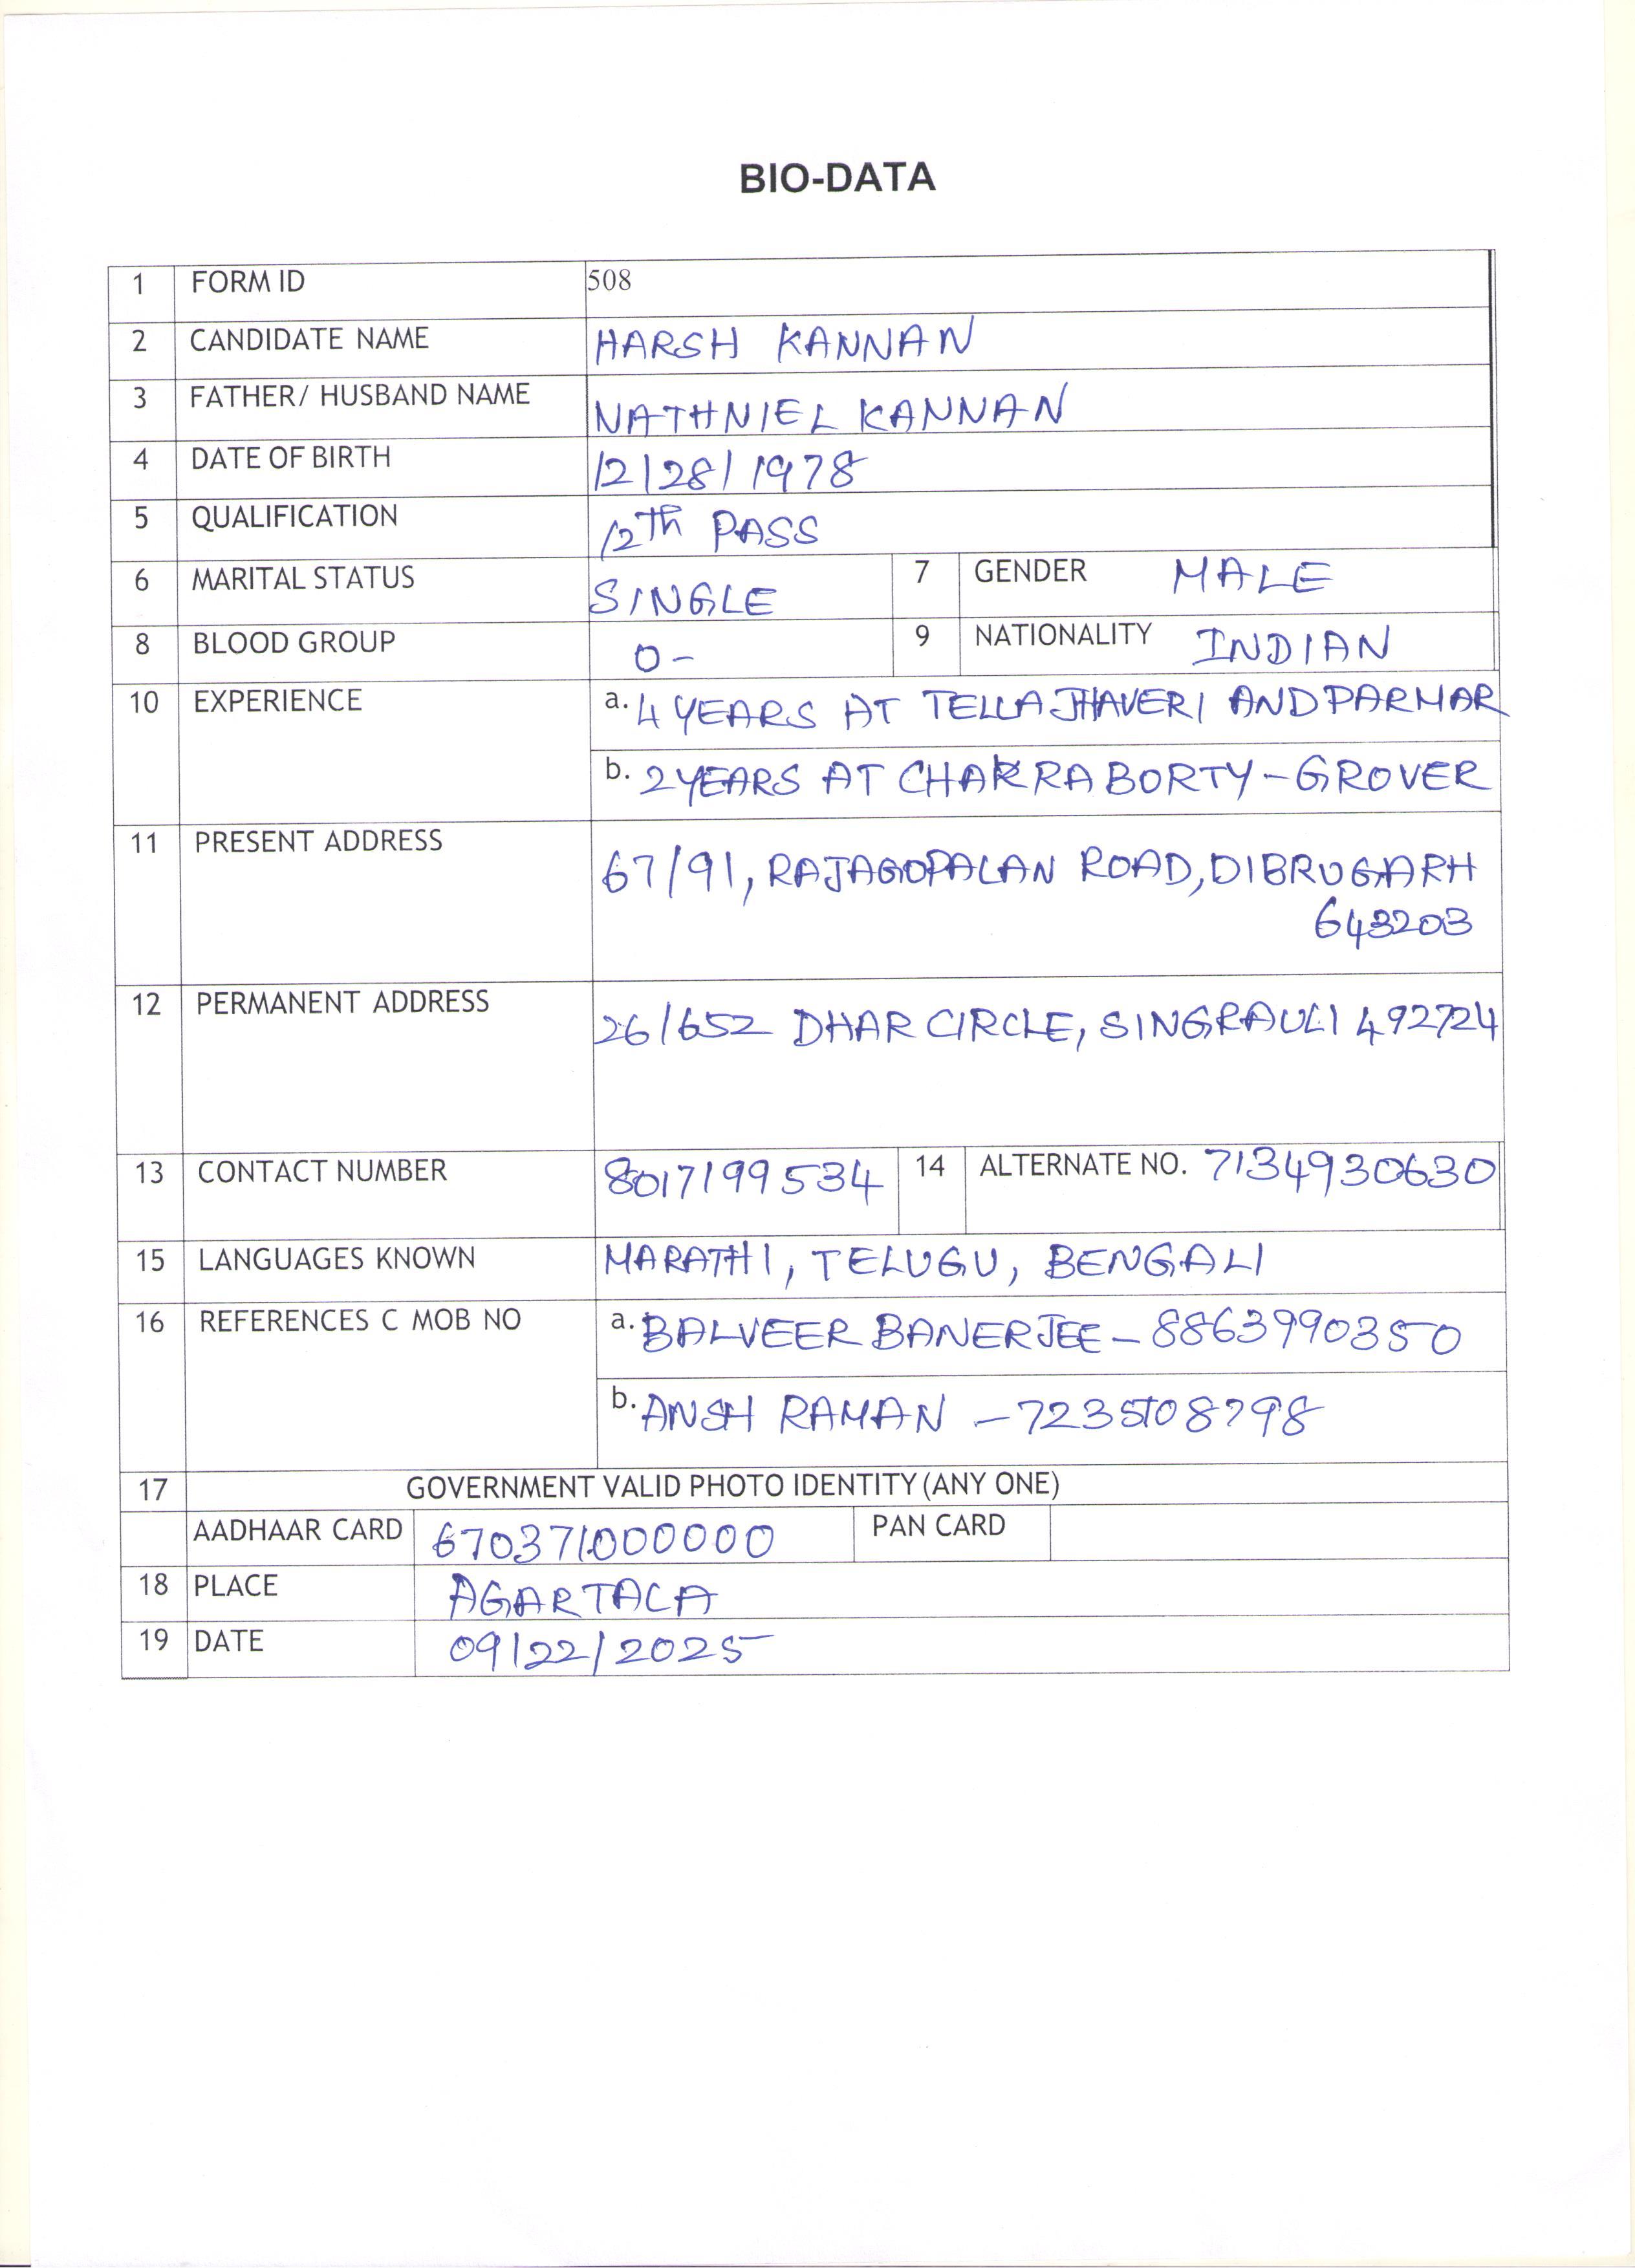 BIO-DATA
1 FORM ID 508
2 CANDIDATE NAME HARSH KANNAN
3 FATHER/ HUSBAND NAME NATHNIEL KANNAN
4 DATE OF BIRTH 12/28/1978
5 QUALIFICATION 12Th PASS
6 MARITAL STATUS SINGLE 7 GENDER MALE
8 BLOOD GROUP O- 9 NATIONALITY INDIAN
10 EXPERIENCE a. 4 YEARS AT TELLA JHAVERI AND PARMAR
b. 2 YEARS AT CHAKRABORTY-GROVER
11 PRESENT ADDRESS 67/91, RAJAGOPALAN ROAD, DIBRUGARH
643203
12 PERMANENT ADDRESS 26/652 DHAR CIRCLE, SINGRAULI 492724
13 CONTACT NUMBER 8017199534 14 ALTERNATE NO. 7134930630
15 LANGUAGES KNOWN MARATHI, TELUGU, BENGALI
16 REFERENCES C MOB NO a. BALVEER BANERJEE - 8863990350
b. ANSH RAMAN - 7235108798
17 GOVERNMENT VALID PHOTO IDENTITY (ANY ONE)
AADHAAR CARD 670371000000 PAN CARD
18 PLACE AGARTALA
19 DATE 09/22/2025